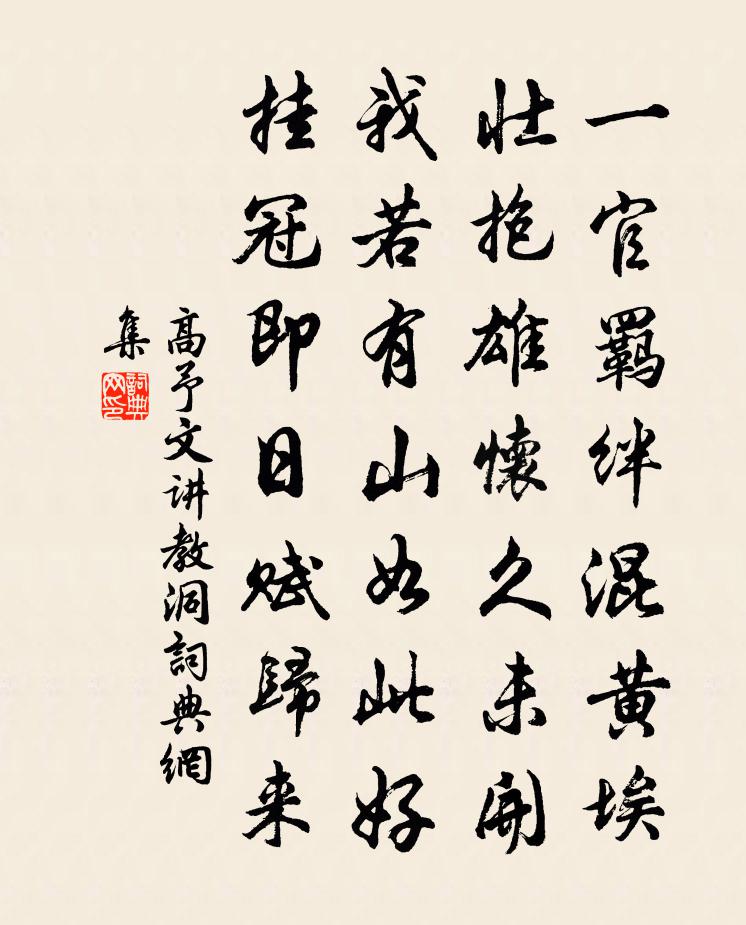 一官羁絆混黄埃
壮抱雄懷久未開
我若有山如此好
挂冠即日赋歸来
高予文讲教洞詞典網
集
詞典
网印